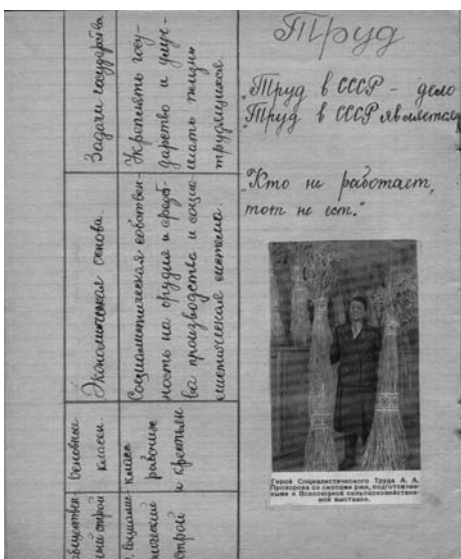 бществен-
ный строй
Основные
классы.
Экономическая основа.
Задачи государства
Социалис-
тический
строй
класс
рабочих
и крестьян
Социалистическая собствен-
ность на орудия и средст-
ва производства и социа-
листическая система.
Укреплять госу-
дарство и улуч-
шать жизнь
трудящихся
Труд
"Труд в СССР – дело
"Труд в СССР является
"Кто не работает,
тот не ест."
Герой Социалистического Труда А. А.
Прозорова со снопами ржи, подготовлен-
ными к Всесоюзной сельскохозяйствен-
ной выставке.